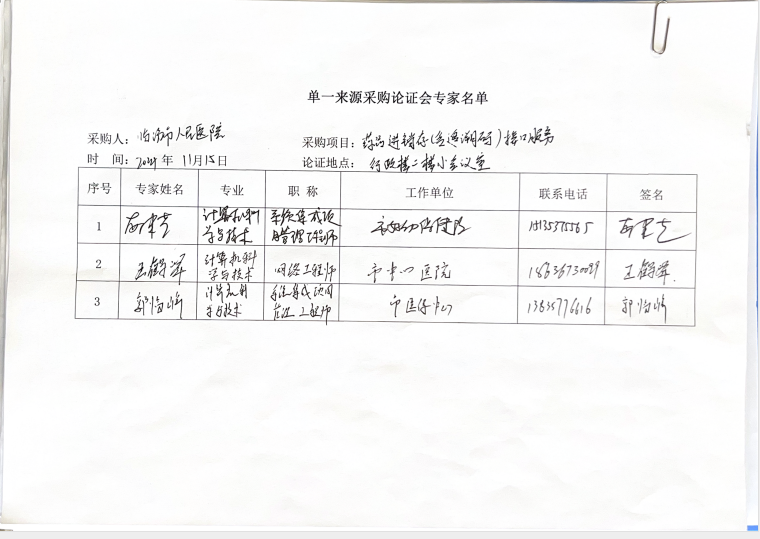 单一来源采购论证会专家名单
采购人：临汾市人民医院
采购项目：药品进销存(含追溯码)接口服务
时 间：2024年11月15日
论证地点：行政楼二楼小会议室
序号 专家姓名 专业 职 称 工作单位 联系电话 签名
1 计算机科学与技术 系统集成项目管理工程师 市妇幼保健院
2 计算机科学与技术 网络工程师 市中心医院 18636730029
3 郭临临 计算机科学与技术 工程师 市医保中心 13835776616 郭临临